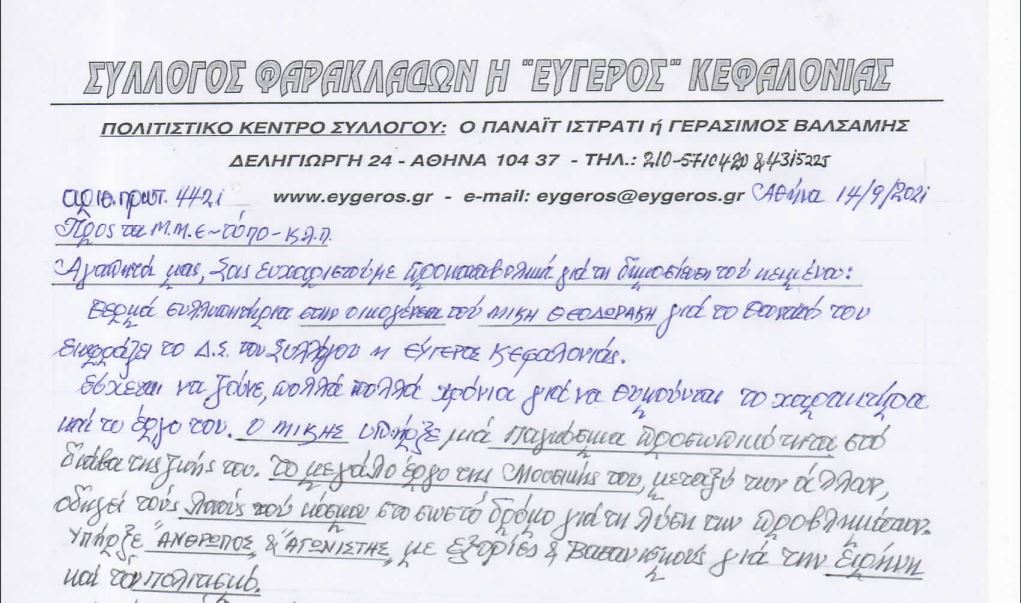 ΣΥΛΛΟΓΟΣ ΦΑΡΑΚΛΑΔΩΝ Η "ΕΥΓΕΡΟΣ" ΚΕΦΑΛΟΝΙΑΣ
ΠΟΛΙΤΙΣΤΙΚΟ ΚΕΝΤΡΟ ΣΥΛΛΟΓΟΥ: Ο ΠΑΝΑΪΤ ΙΣΤΡΑΤΙ ή ΓΕΡΑΣΙΜΟΣ ΒΑΛΣΑΜΗΣ
ΔΕΛΗΓΙΩΡΓΗ 24 - ΑΘΗΝΑ 104 37 - ΤΗΛ.: 210-5710420 & 4315225
αριθ. πρωτ. 4421 www.eygeros.gr - e-mail: eygeros@eygeros.gr Αθήνα 14/9/2021
Προς τα Μ.Μ.Ε - τύπο - κλπ.
Αγαπητοί μας, Σας ευχαριστούμε προκαταβολικά για τη δημοσίευση του κειμένου:
Θερμά συλλυπητήρια στην οικογένεια του ΜΙΚΗ ΘΕΟΔΩΡΑΚΗ για το θάνατό του
εκφράζει το Δ.Σ. του Συλλόγου η ΕΥΓΕΡΟΣ Κεφαλονιάς.
Εύχεται να ζούνε, πολλά πολλά χρόνια για να θυμούνται το χαρακτήρα
και το έργο του. Ο ΜΙΚΗΣ υπήρξε μιά παγκόσμια προσωπικότητα στο
διάβα της ζωής του. Το μεγάλο έργο της Μουσικής του, μεταξύ των άλλων,
οδηγεί τούς λαούς τού κόσμου στο σωστό δρόμο για τη λύση των προβλημάτων.
Υπήρξε ΑΝΘΡΩΠΟΣ, & ΑΓΩΝΙΣΤΗΣ, με εξορίες & βασανισμούς γιά την Ειρήνη
καί τον πολιτισμό.